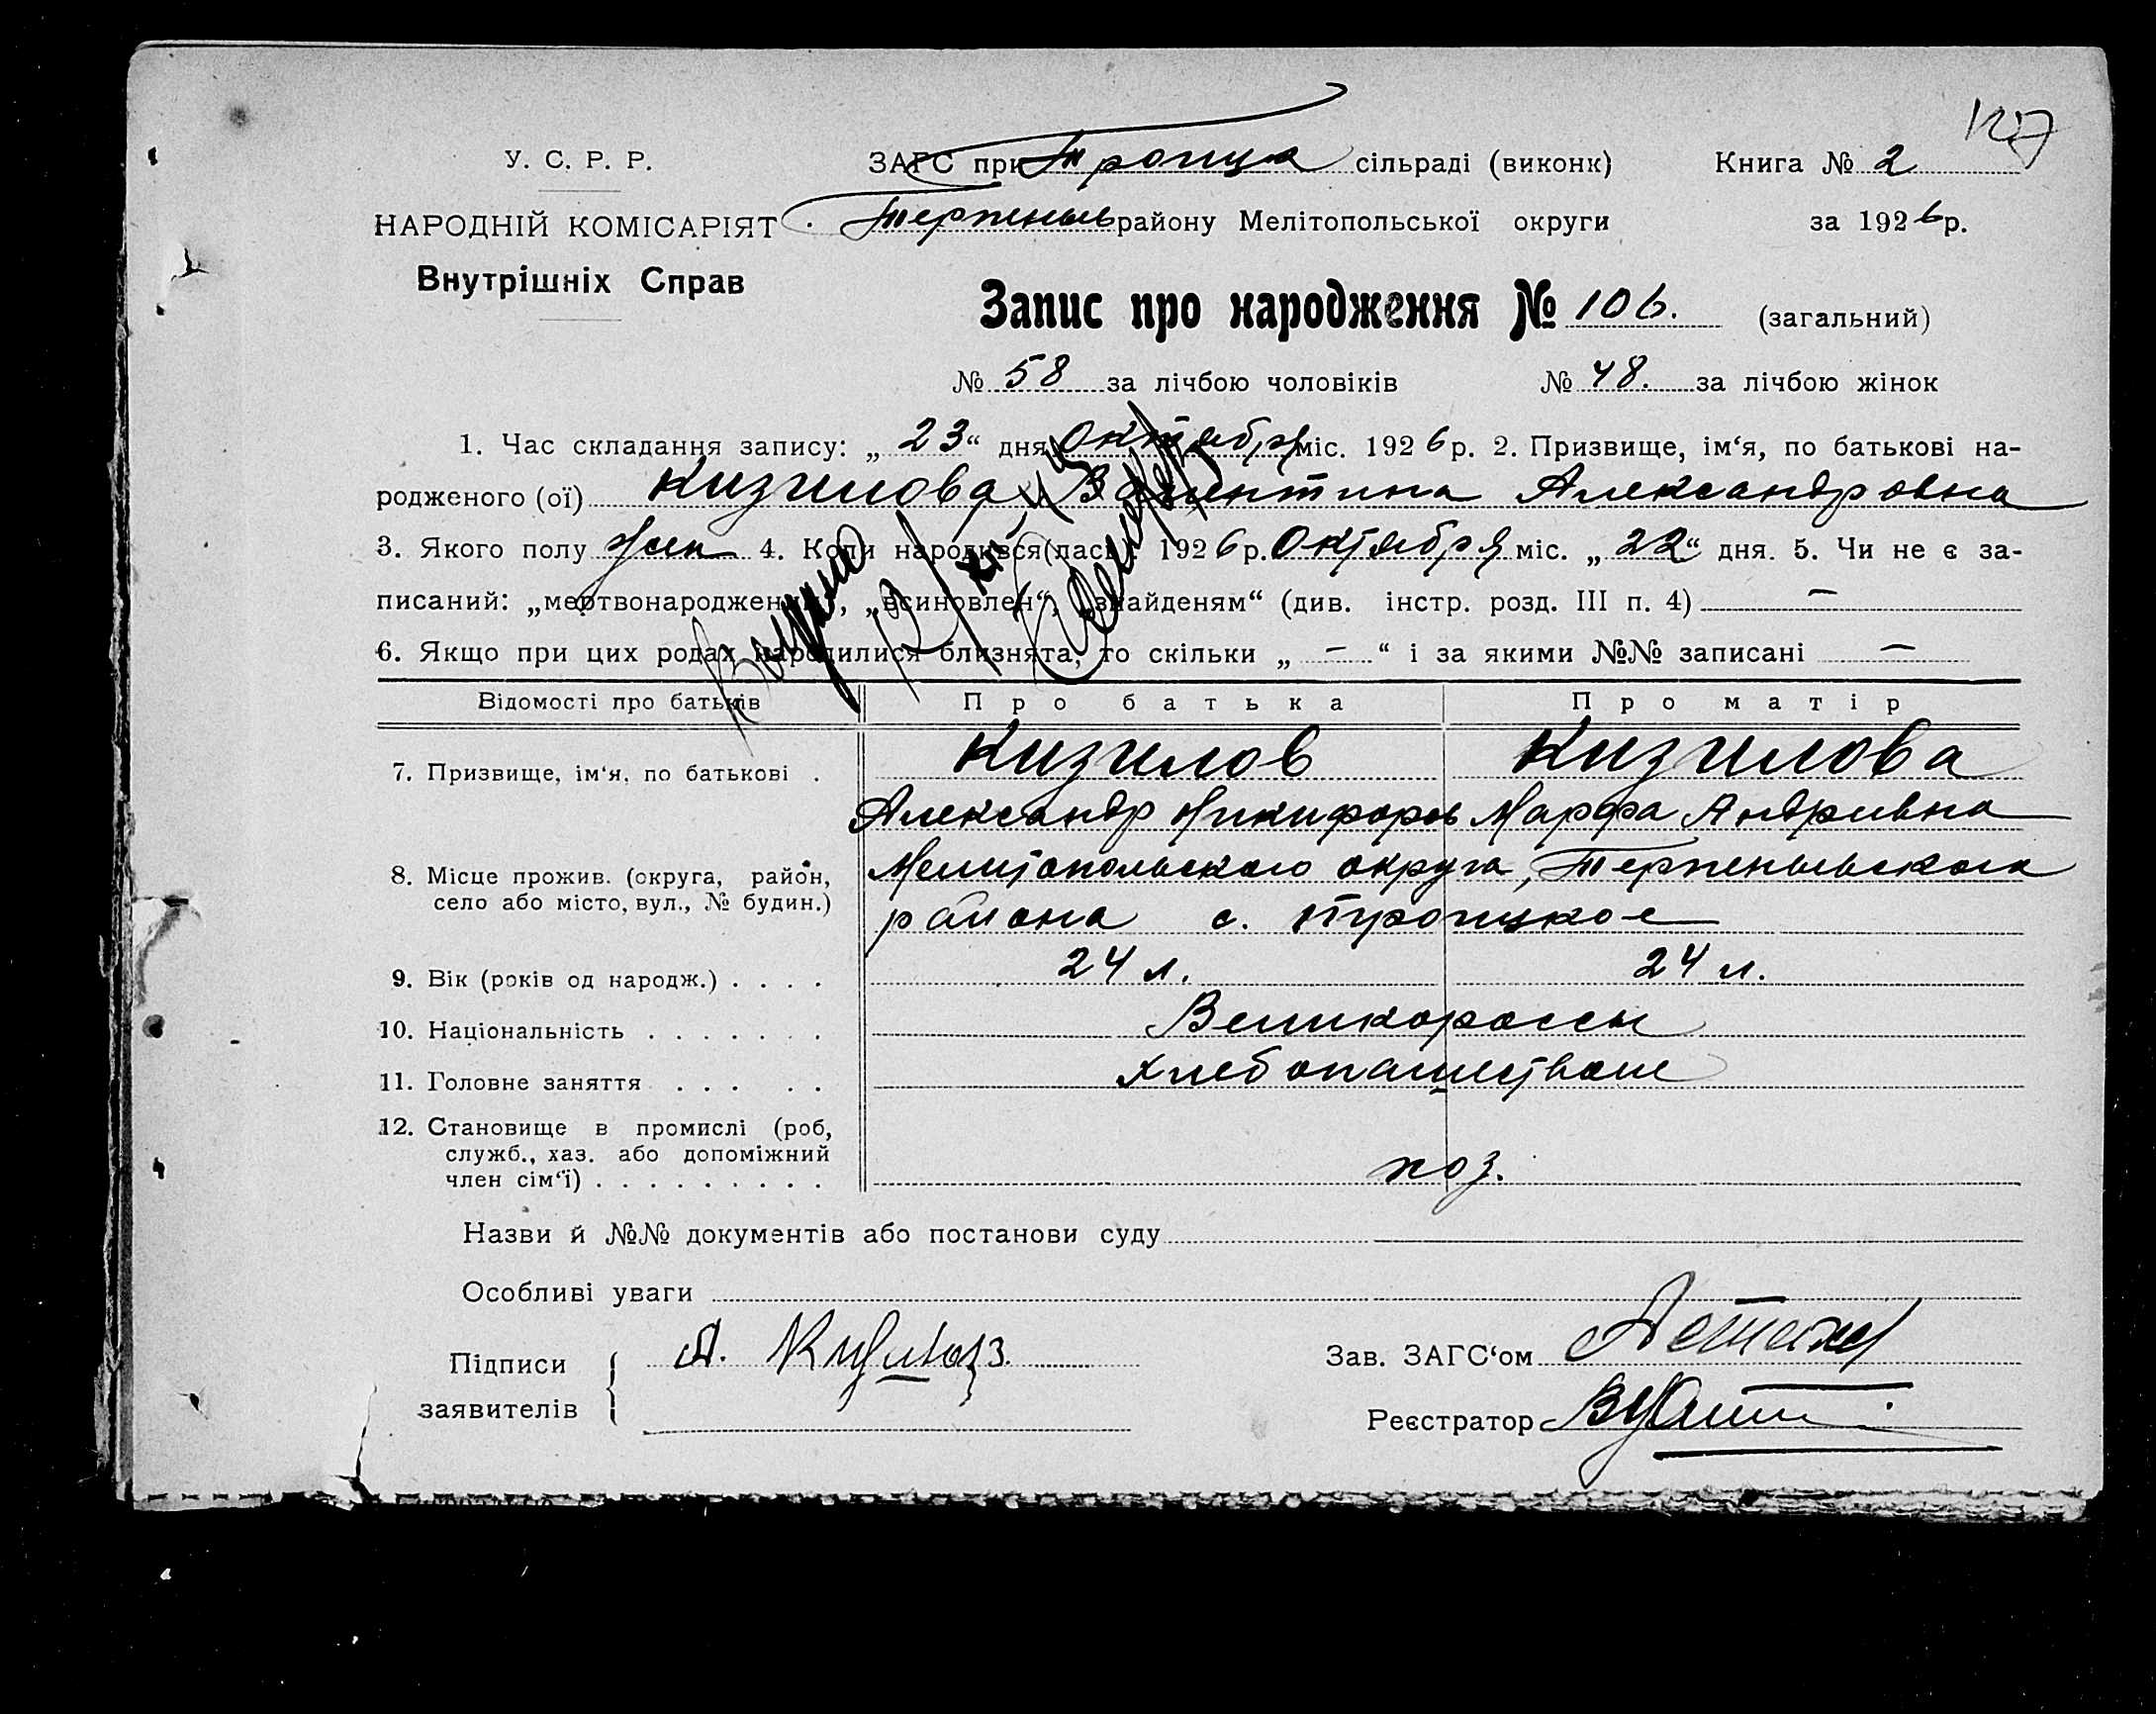 127
У. С. Р. Р.
ЗАГС при Троицк сільраді (виконк)
Книга № 2
НАРОДНІЙ КОМІСАРІЯТ
Терпеньев району Мелітопольської округи
за 1926 р.
Внутрішніх Справ
Запис про народження № 106. (загальний)
№ 58 за лічбою чоловіків № 48. за лічбою жінок
1. Час складання запису: „ 23 “ дня октября міс. 1926 р. 2. Призвище, ім‘я, по батькові на-
родженого (ої) Кизилова Валентина Александровна
3. Якого полу жен 4. Коли народився(лась) 1926 р. Октября міс. „ 22 “ дня. 5. Чи не є за-
писаний: „мертвонароджений“, „всиновлен“, „знайденям“ (див. інстр. розд. III п. 4) —
6. Якщо при цих родах народилися близнята, то скільки „ — “ і за якими №№ записані —
Відомості про батьків Про батька Про матір
7. Призвище, ім‘я, по батькові . Кизилов Кизилова
Александр Никифоров Марфа Андреевна
8. Місце прожив. (округа, район, село або місто, вул., № будин.) Мелитопольского округа, Терпеньевского
района с. Троицкое
9. Вік (років од народж.) . . . . 24 л. 24 л.
10. Національність . . . . . . . Великороссы
11. Головне заняття . . . . . Хлебопашество
12. Становище в промислі (роб,
служб., хаз. або допоміжний
член сім‘ї) . . . . . . . . . хоз.
Назви й №№ документів або постанови суду
Особливі уваги
Підписи заявителів А. Кизилов
Зав. ЗАГС‘ом
Реєстратор